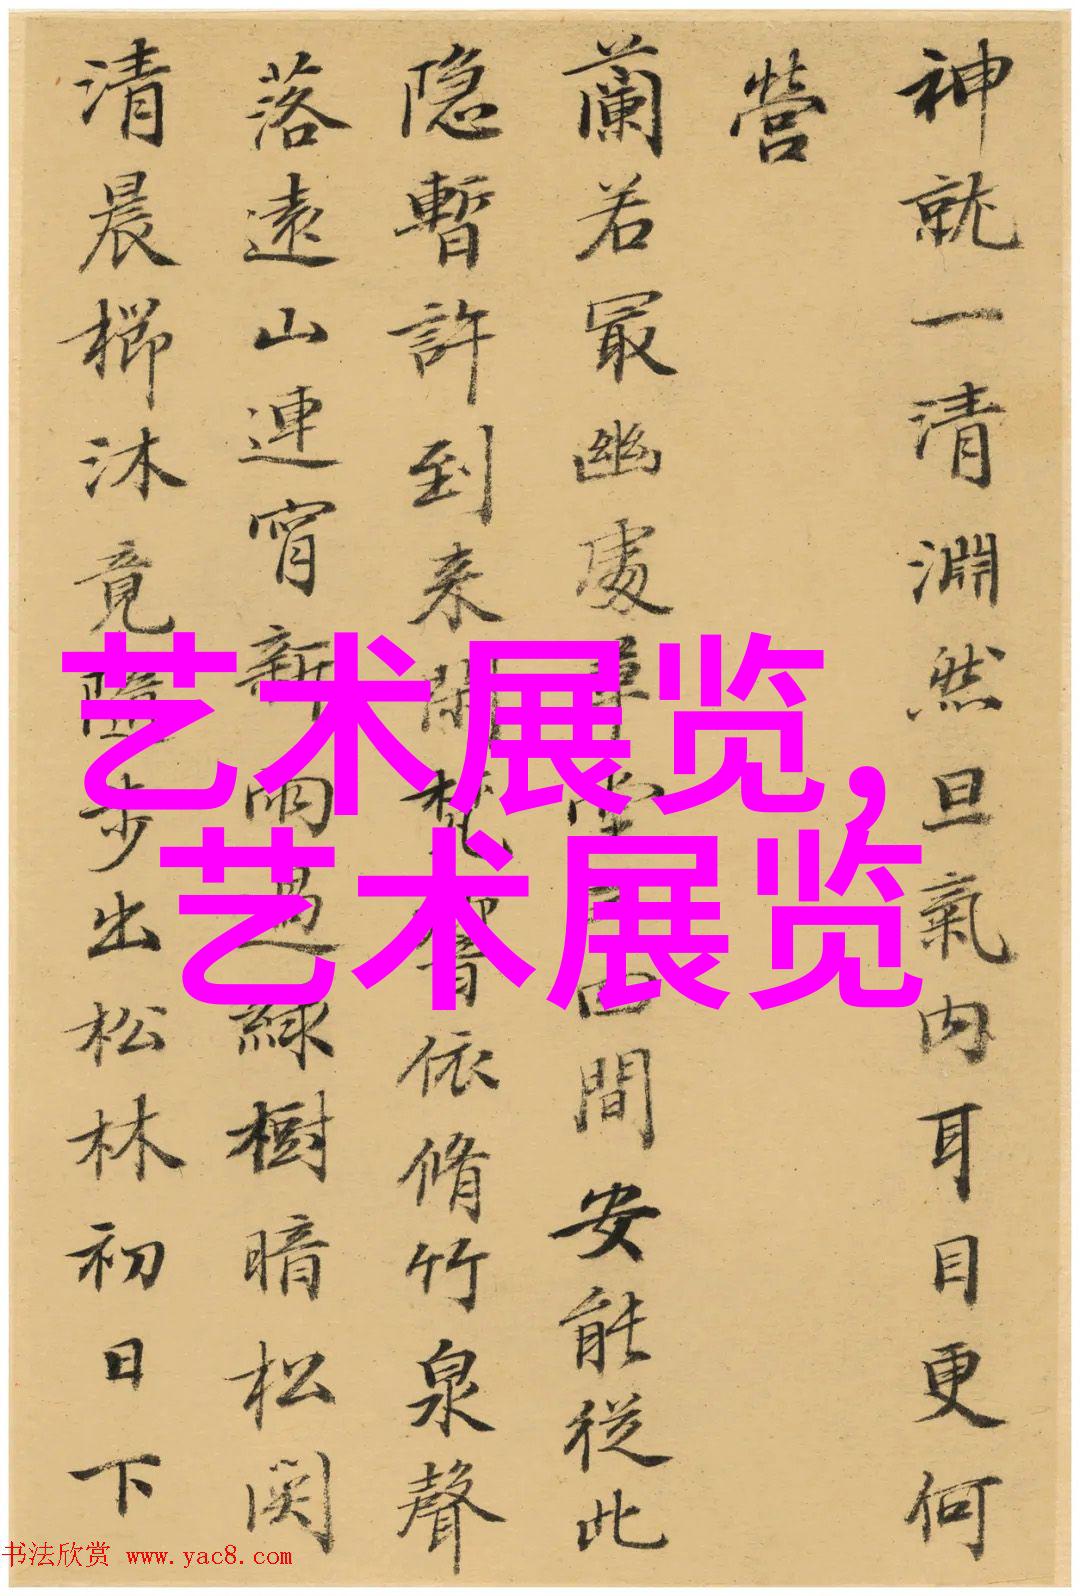 神就一清淵然旦氣内耳目更何
營
蘭若冣幽處草堂四間安能從此
隐暫許到来閑梵響依脩竹泉聲
落遠山連宵新雨過綠樹暗松関
清晨櫛沐竟隨步出松林初日下
艺术展览,
艺术展览
书法欣赏 www.yac8.com